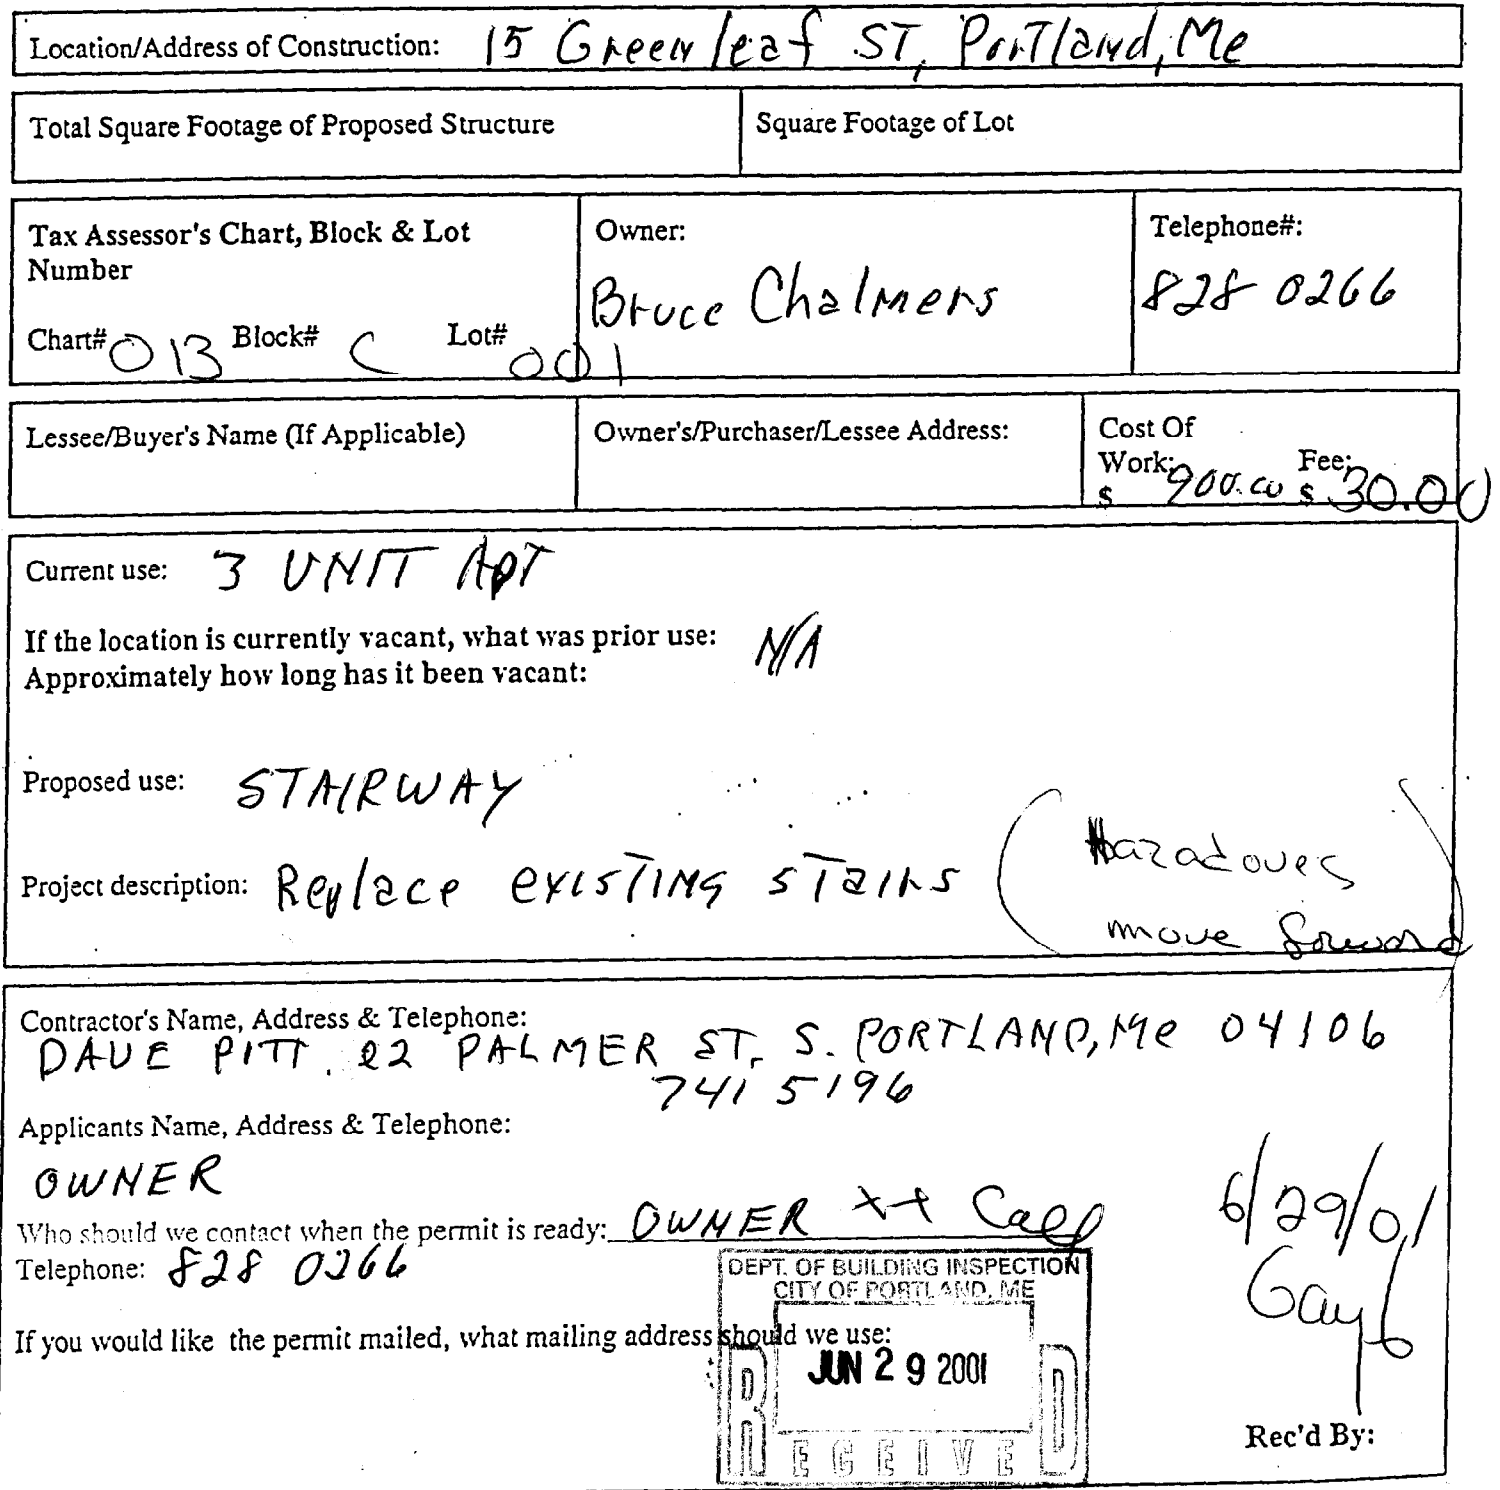 Location/Address of Construction: 15 Greenleaf ST, Portland, Me
Total Square Footage of Proposed Structure
Square Footage of Lot
Tax Assessor's Chart, Block & Lot
Number
Chart# 013 Block# C Lot# 001
Owner:
Bruce Chalmers
Telephone#:
828 0266
Lessee/Buyer's Name (If Applicable)
Owner's/Purchaser/Lessee Address:
Cost Of
Work: Fee:
$ 900.00 $ 30.00
Current use: 3 UNIT APT
If the location is currently vacant, what was prior use: N/A
Approximately how long has it been vacant:
Proposed use: STAIRWAY
Project description: Replace existing stairs
(Hazadoues
move forward)
Contractor's Name, Address & Telephone:
DAVE PITT. 22 PALMER ST, S. PORTLAND, Me 04106
741 5196
Applicants Name, Address & Telephone:
OWNER
Who should we contact when the permit is ready: OWNER ** Call
Telephone: 828 0266
If you would like the permit mailed, what mailing address should we use:
DEPT. OF BUILDING INSPECTION
CITY OF PORTLAND, ME
JUN 29 2001
RECEIVED
6/29/01
Gayle
Rec'd By: